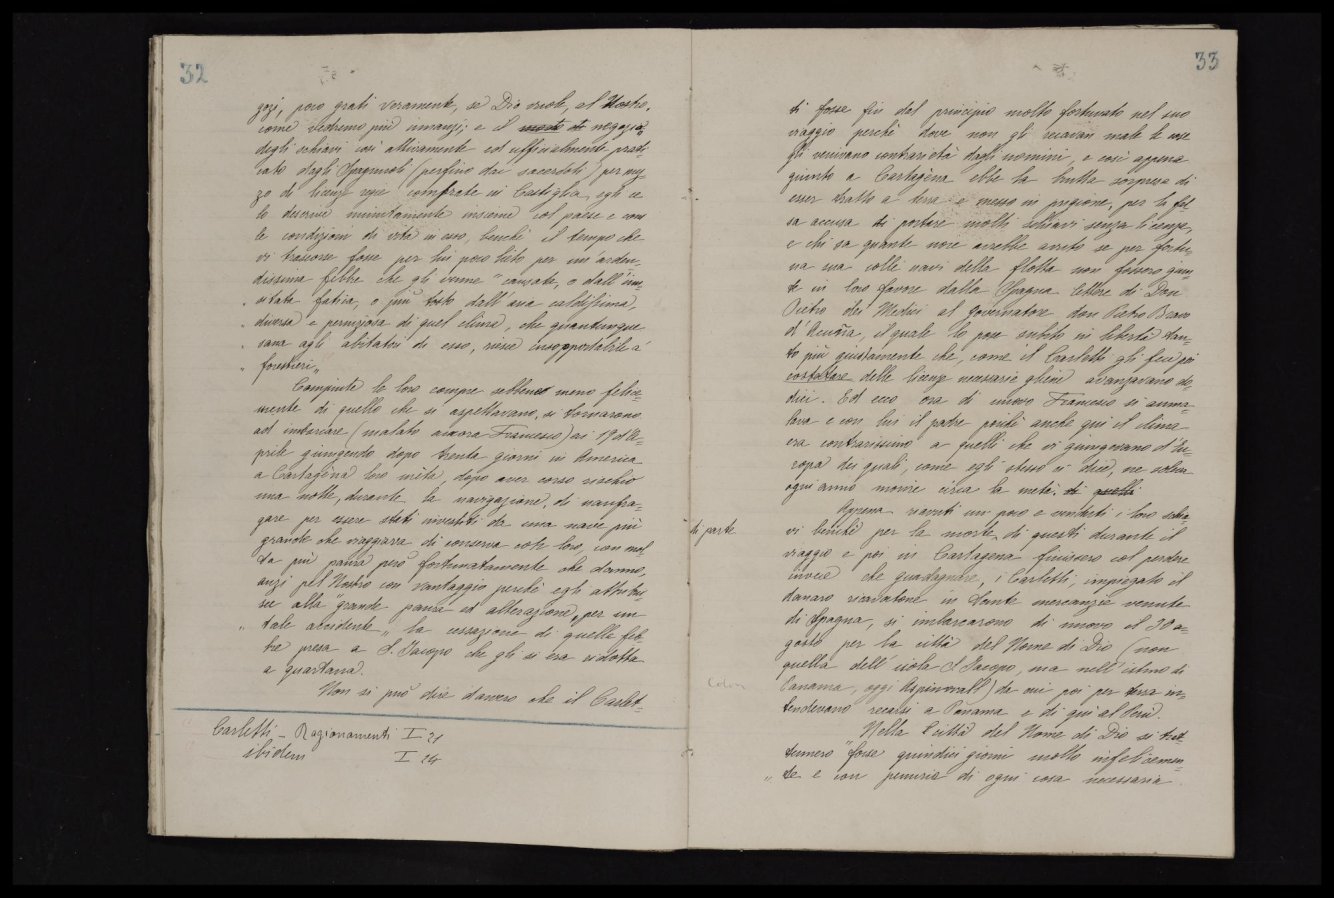 32
gozi, poco grati veramente, se Dio vuole, al Nostro,
come vedremo più innanzi; e il negozio
degli schiavi così attivamente ed ufficialmente prati-
cato dagli Spagnuoli (perfino dai sacerdoti) per mez-
zo di licenze regie comprate in Castiglia, egli ce
lo descrive minutamente insieme col paese e con
le condizioni di vita in esso, benchè il tempo che
vi trascorse fosse per lui poco lieto per un'arden-
dissima febbre che gli venne "causata, o dall'inu-
„ sitata fatica, o più tosto dall'aria caldissima,
„ diversa e perniziosa di quel clima, che quantunque
„ sana agli abitatori di esso, riesce insopportabile a'
„ forestieri„
Compiute le loro compre sebbene meno felice-
mente di quello che si aspettavano, si tornarono
ad imbarcare (malato ancora Francesco) ai 19 d'A-
prile giungendo dopo trenta giorni in America
a Cartagèna loro mèta, dopo aver corso rischio
una notte, durante la navigazione, di naufra-
gare per essere stati investiti da una nave più
grande che viaggiava di conserva con loro, con mol
ta più paura però fortunatamente che danno,
anzi pel Nostro con vantaggio perchè egli attribui-
sce alla "grande paura ed alterazione, per un
„ tale accidente„ la cessazione di quella feb-
bre presa a S. Jacopo che gli si era ridotta
a quartana.
Non si può dire davvero che il Carlet-
Carletti - Ragionamenti I - 21
ibidem I - 24
33
ti fosse fin dal principio molto fortunato nel suo
viaggio perchè dove non gli recavan male le cose
gli venivano contrarietà dagli uomini, e così appena
giunto a Cartagèna ebbe la brutta sorpresa di
esser tratto a terra e messo in prigione, per la fal-
sa accusa di portare molti schiavi senza licenze,
e chi sa quante noie avrebbe avuto se per fortu-
na sua colle navi della flotta non fossero giun-
te in loro favore dalla Spagna lettere di Don
Pietro dei Medici al Governatore don Pietro Bravo
d'Acuña, il quale lo pose subito in libertà tan-
to più giustamente che, come il Carletti gli fece poi
constatare delle licenze necessarie gliene avanzavano do-
dici. Ed ecco ora di nuovo Francesco si amma-
lava e con lui il padre poichè anche qui il clima
era contrarissimo a quelli che vi giungevano d'Eu-
ropa dei quali, come egli stesso ci dice, ne soleva
ogni anno morire circa la metà. di quelli
Appena riavuti un poco e venduti i loro schia-
di parte
vi benchè per la morte di questi durante il
viaggio e poi in Cartagena finissero col perdere
invece che guadagnare, i Carletti, impiegato il
danaro ricavatone in tante mercanzie venute
di Spagna, si imbarcarono di nuovo il 30 a-
gosto per la città del Nome di Dio (non
quella dell'isola S Jacopo, ma nell'istmo di
Colon
Panama, oggi Aspinwall) da cui poi per terra in-
tendevano recarsi a Panama e di qui al Perù.
Nella Città del Nome di Dio si trat-
tennero "forse quindici giorni molto infelicemen-
„ te e con penuria di ogni cosa necessaria